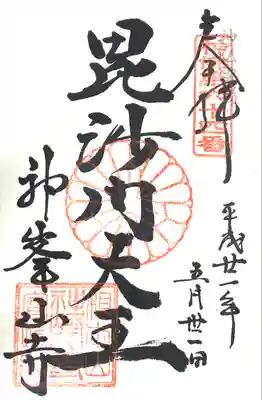 奉拝
平成廿一年
五月廿一日
毘沙門天王
神峯山寺